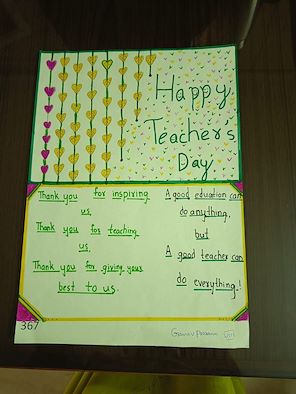 Happy
Teacher's
Day
Thank you for inspiring
us.
Thank you for teaching
us.
Thank you for giving your
best to us.
A good education can
do anything,
but
A good teacher can
do everything!
367